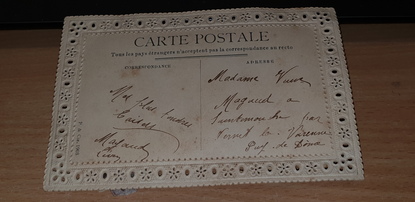 CARTE POSTALE
Tous les pays étrangers n'acceptent pas la correspondance au recto
CORRESPONDANCE
ADRESSE
Nos plus tendres
Magaud
Madame Veuve
Magaud a
par
le Varenne
Puy de Dôme